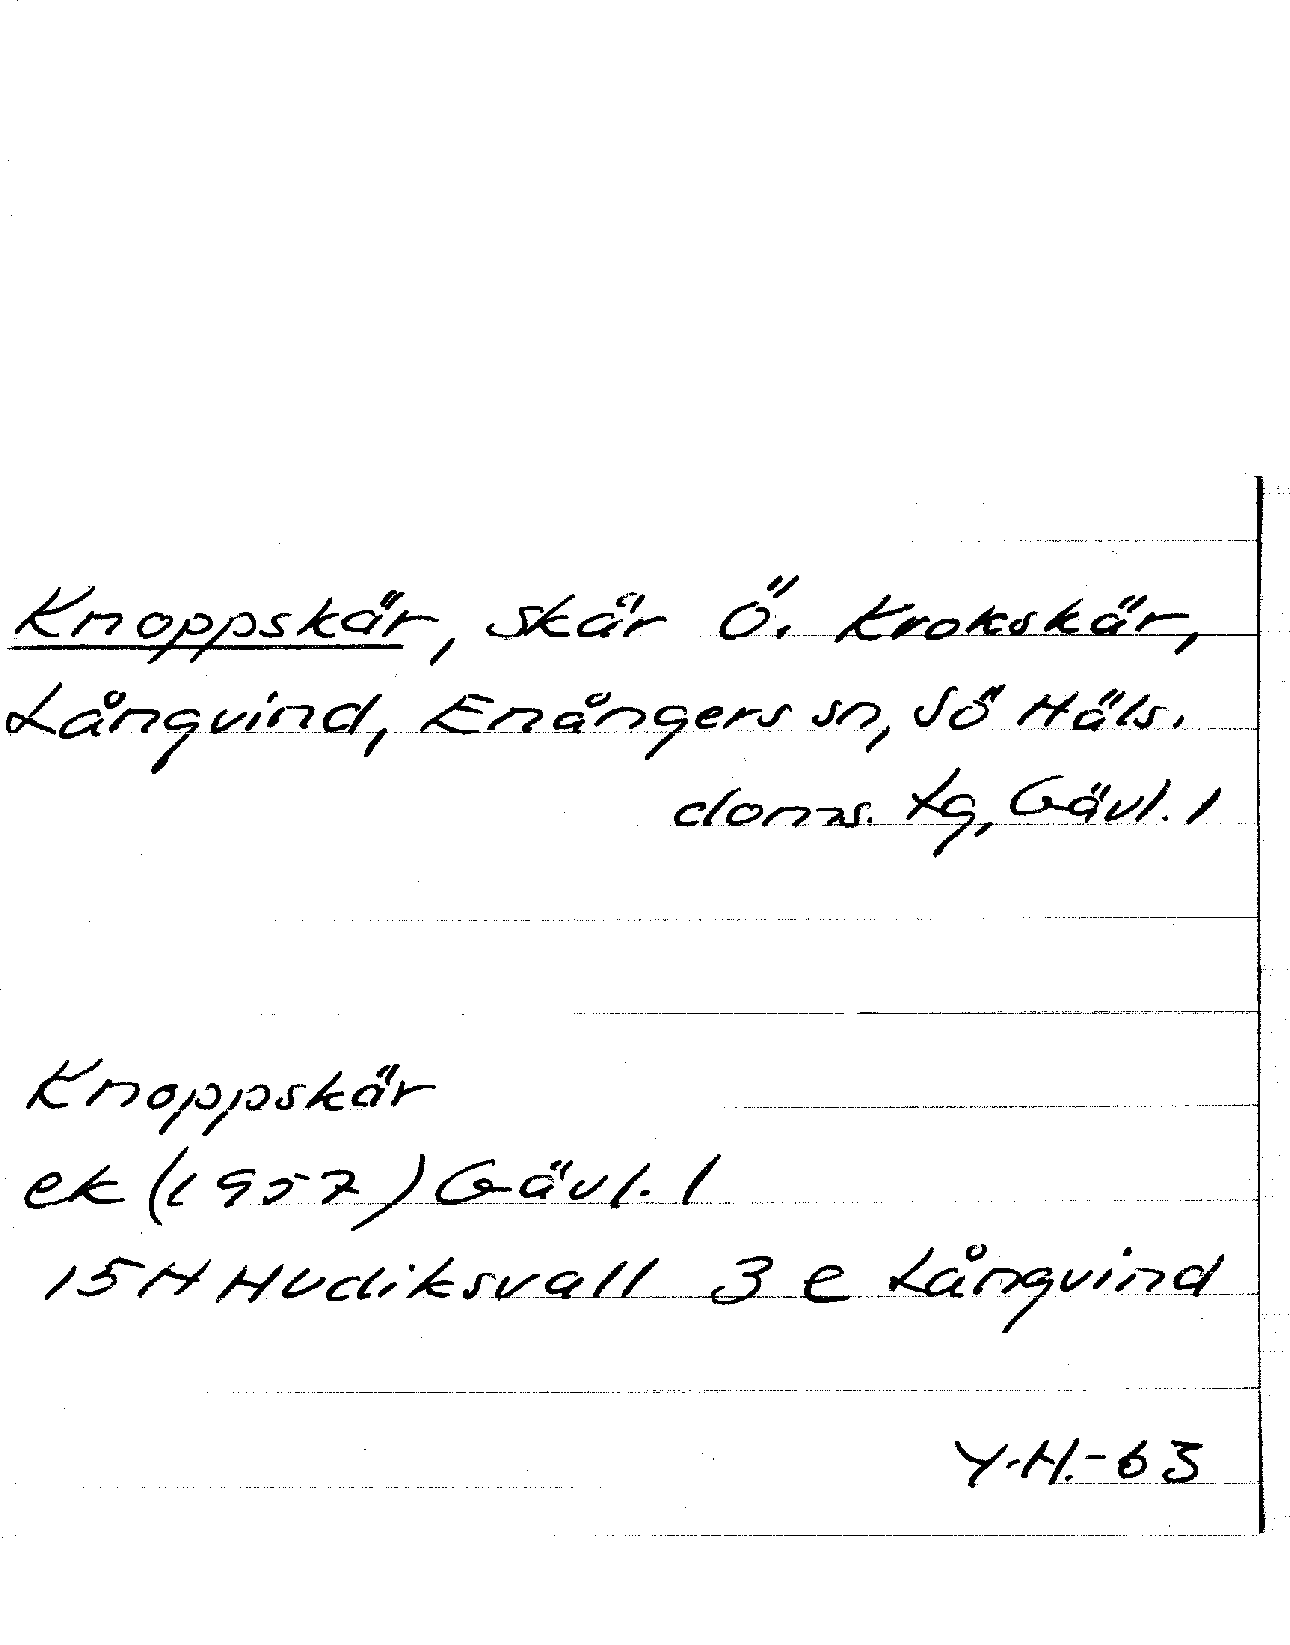 Knoppskär, skär Ö. Krokskär,
Långvind, Enångers sn, Sö Häls.
doms. lg, Gävl. l
Knoppskär
ek (1957) Gävl. l
15H Hudiksvall 3 e Långvind
Y.H.-63